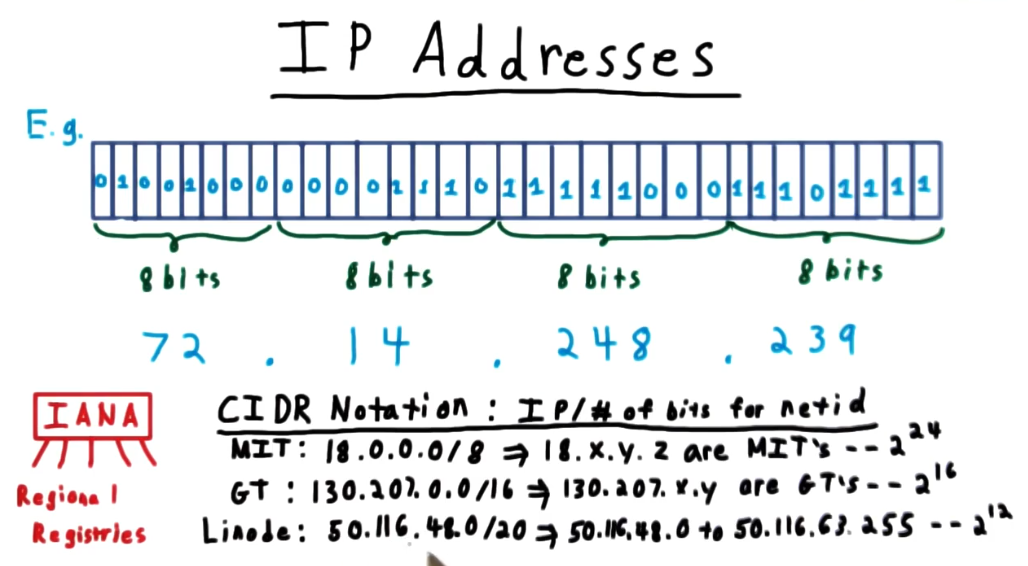 IP Addresses
E.g.
0 1 0 0 1 0 0 0 0 0 0 0 1 1 1 0 1 1 1 1 1 0 0 0 1 1 1 0 1 1 1 1
8 bits 8 bits 8 bits 8 bits
72 . 14 . 248 . 239
IANA
Regional
Registries
CIDR Notation : IP/# of bits for netid
MIT: 18.0.0.0/8 ⇒ 18.x.y.z are MIT's -- 2^24
GT : 130.207.0.0/16 ⇒ 130.207.x.y are GT's -- 2^16
Linode: 50.116.48.0/20 ⇒ 50.116.48.0 to 50.116.63.255 -- 2^12